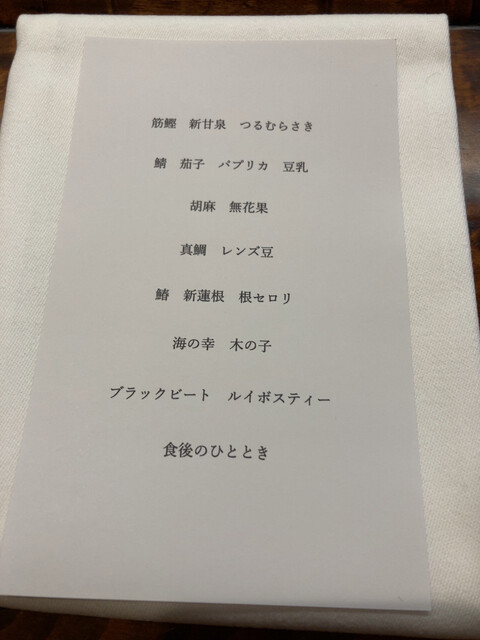 筋鰹　新甘泉　つるむらさき
鯖　茄子　パプリカ　豆乳
胡麻　無花果
真鯛　レンズ豆
鰆　新蓮根　根セロリ
海の幸　木の子
ブラックビート　ルイボスティー
食後のひととき